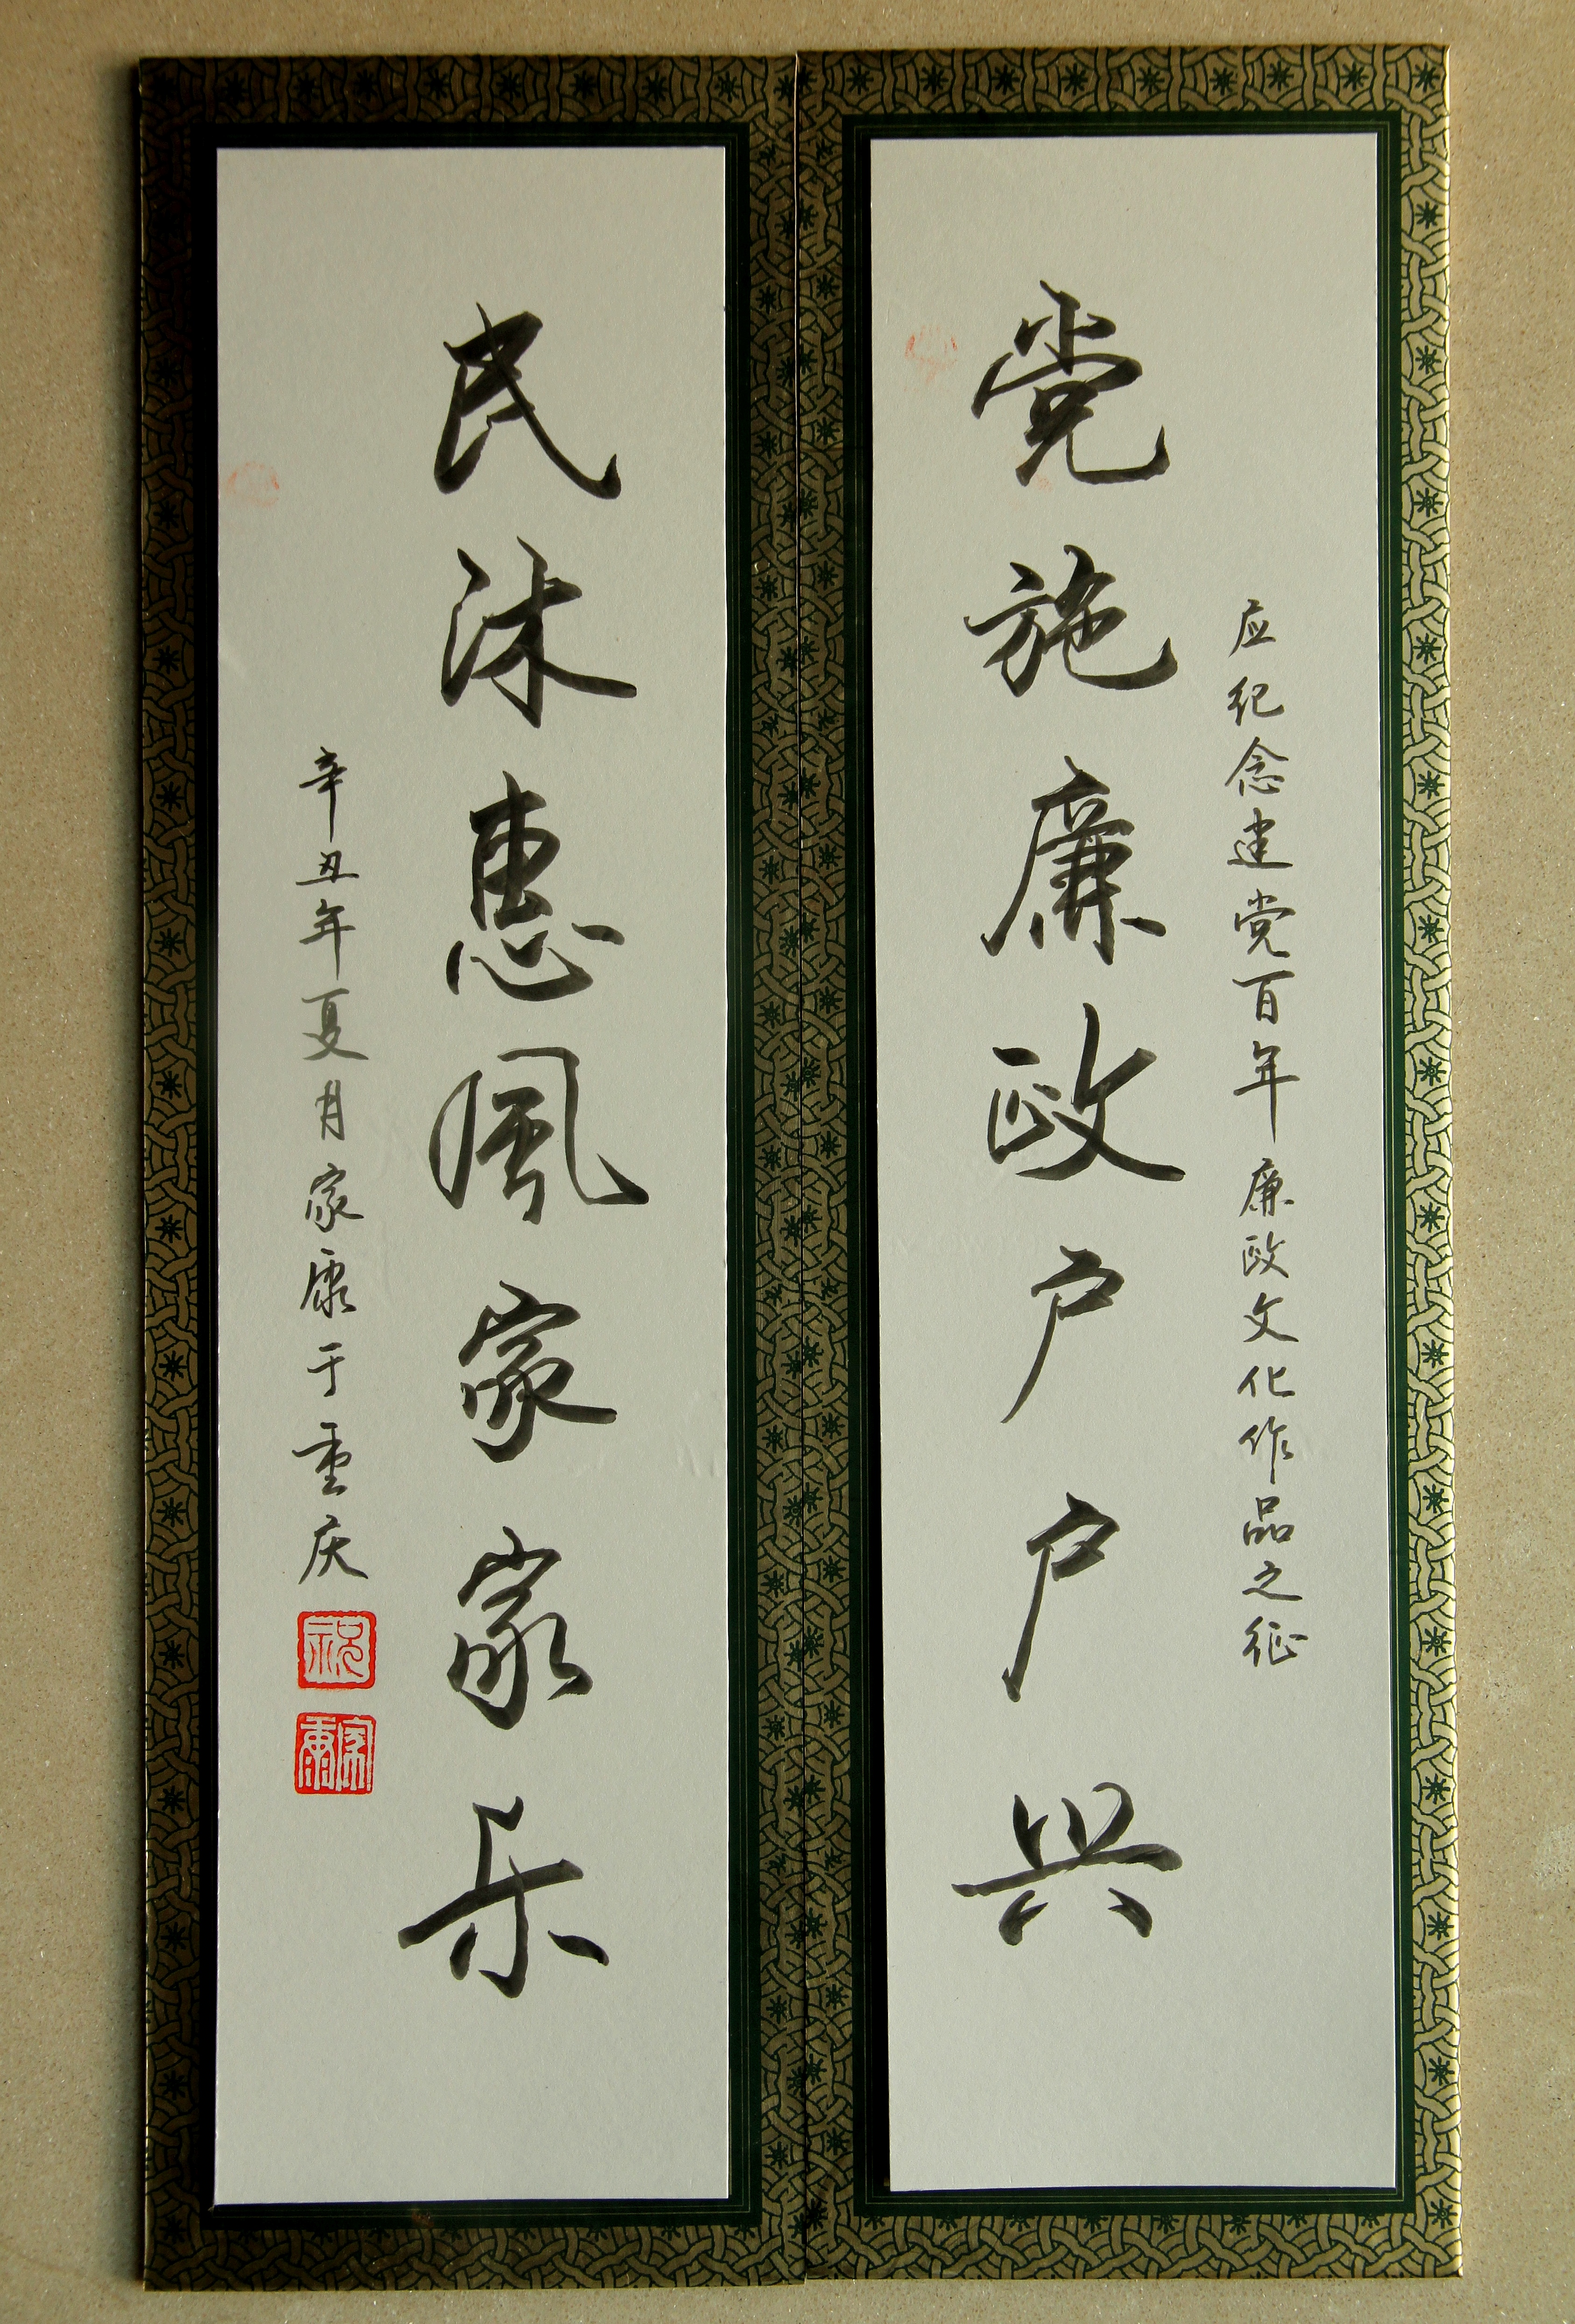 应纪念建党百年廉政文化作品之征
党施廉政户户兴
民沐惠风家家乐
辛丑年夏月家康于重庆
祝
家康